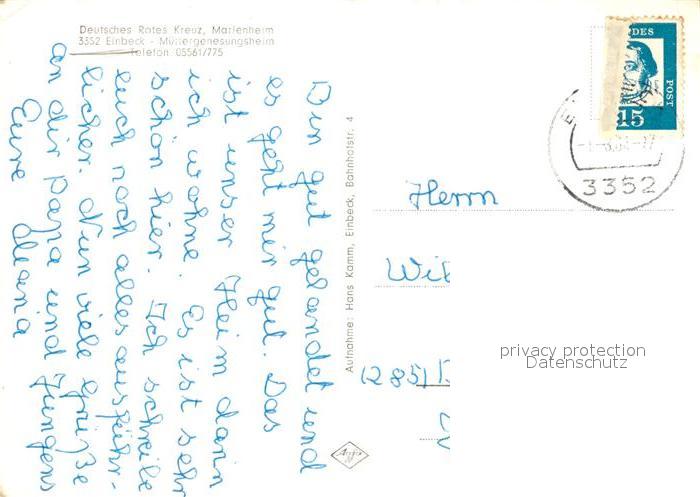 Deutsches Rotes Kreuz, Marienheim
3352 Einbeck - Müttergenesungsheim
Telefon 05561/775
Bin gut gelandet und
es geht mir gut. Das
ist unser Heim darin
ich wohne. Es ist sehr
schön hier. Ich schreibe
euch noch alles ausführ-
licher. Nun viele Grüße
an dir Papa und Jungens
Eure Mama
Aufnahme: Hans Kamm, Einbeck, Bahnhofstr. 4
Agfa
DES
POST
15
3352
Herrn
privacy protection
Datenschutz